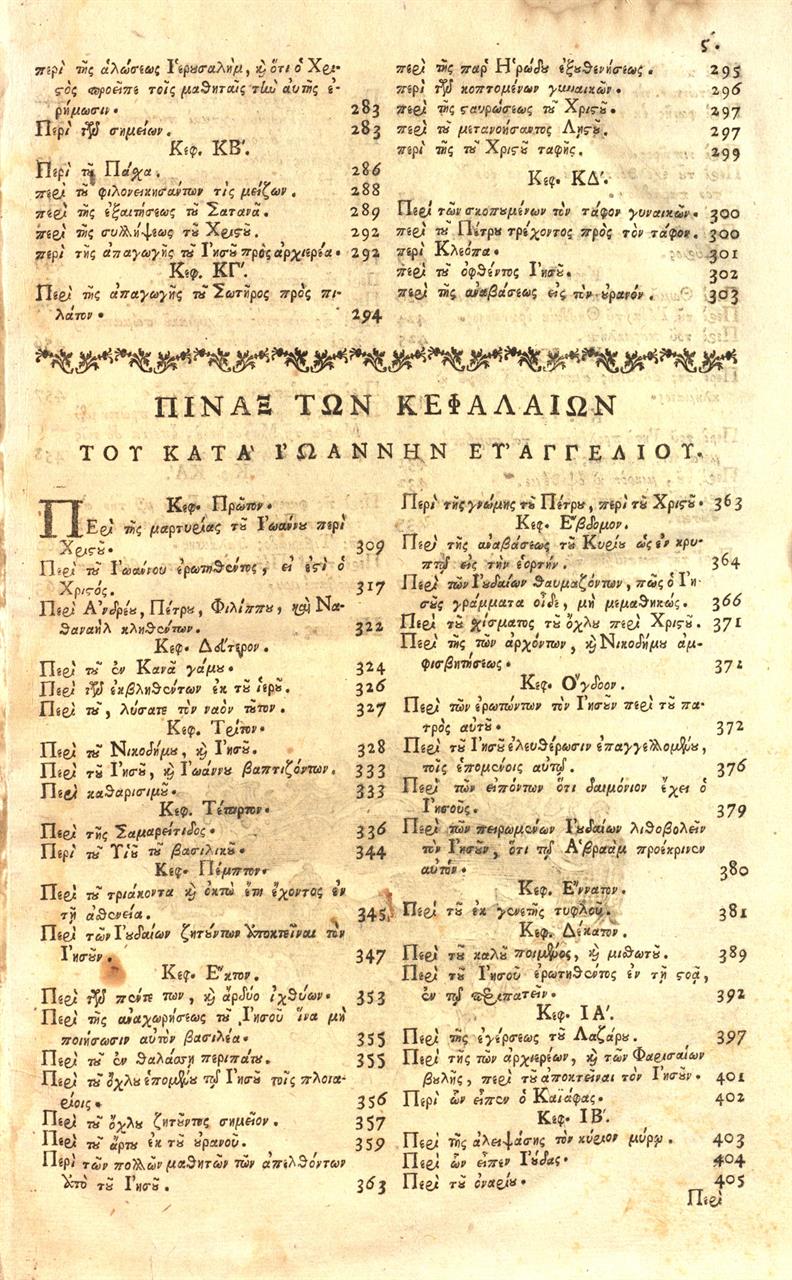 5.
περὶ τῆς ἁλώσεως Ἱερουσαλὴμ, καὶ ὅτι ὁ Χρι-
στὸς προεῖπε τοῖς μαθηταῖς τὴν αὐτῆς ἐ-
ρήμωσιν. 283
Περὶ τῶν σημείων. 283
Κεφ. ΚΒ'.
Περὶ τοῦ Πάσχα. 286
περὶ τοῦ φιλονεικησάντων τὶς μείζων. 288
περὶ τῆς ἐξαιτήσεως τοῦ Σατανᾶ. 289
περὶ τῆς συλλήψεως τοῦ Χριστοῦ. 292
περὶ τῆς ἀπαγωγῆς τοῦ Ἰησοῦ πρὸς ἀρχιερέα. 292
Κεφ. ΚΓ'.
Περὶ τῆς ἀπαγωγῆς τοῦ Σωτῆρος πρὸς πι-
λάτον. 294
περὶ τῆς παρ' Ἡρώδου ἐξουθενήσεως. 295
περὶ τῶν κοπτομένων γυναικῶν. 296
περὶ τῆς σταυρώσεως τοῦ Χριστοῦ. 297
περὶ τοῦ μετανοήσαντος Λῃστοῦ. 297
περὶ τῆς τοῦ Χριστοῦ ταφῆς. 299
Κεφ. ΚΔ'.
Περὶ τῶν σκοπουμένων τὸν τάφον γυναικῶν. 300
περὶ τοῦ Πέτρου τρέχοντος πρὸς τὸν τάφον. 300
περὶ Κλεόπα. 301
περὶ τοῦ ὀφθέντος Ἰησοῦ. 302
περὶ τῆς ἀναβάσεως εἰς τὸν οὐρανόν. 303
ΠΙΝΑΞ ΤΩΝ ΚΕΦΑΛΑΙΩΝ
ΤΟΥ ΚΑΤΑ' Ι'ΩΑΝΝΗΝ ΕΥ'ΑΓΓΕΛΙΟΥ.
Κεφ. Πρῶτον.
ΠΕρὶ τῆς μαρτυρίας τοῦ Ἰωάννου περὶ
Χριστοῦ. 309
Περὶ τοῦ Ἰωάννου ἐρωτηθέντος, εἰ ἐστὶ ὁ
Χριστός. 317
Περὶ Ἀνδρέου, Πέτρου, Φιλίππου, καὶ Να-
θαναὴλ κληθέντων. 322
Κεφ. Δεύτερον.
Περὶ τοῦ ἐν Κανᾶ γάμου. 324
Περὶ τῶν ἐκβληθέντων ἐκ τοῦ ἱεροῦ. 326
Περὶ τοῦ, λύσατε τὸν ναὸν τοῦτον. 327
Κεφ. Τρίτον.
Περὶ τοῦ Νικοδήμου, καὶ Ἰησοῦ. 328
Περὶ τοῦ Ἰησοῦ, καὶ Ἰωάννου βαπτιζόντων. 333
Περὶ καθαρισιμοῦ. 333
Κεφ. Τέταρτον.
Περὶ τῆς Σαμαρείτιδος. 336
Περὶ τοῦ Υἱοῦ τοῦ βασιλικοῦ. 344
Κεφ. Πέμπτον.
Περὶ τοῦ τριάκοντα καὶ ὀκτὼ ἔτη ἔχοντος ἐν
τῇ ἀσθενεία. 345
Περὶ τῶν Ἰουδαίων ζητούντων ἀποκτεῖναι τὸν
Ἰησοῦν. 347
Κεφ. Ἕκτον.
Περὶ τῶν πέντε των, καὶ ἄρδύο ἰχθύων. 353
Περὶ τῆς ἀναχωρήσεως τοῦ Ἰησοῦ ἵνα μὴ
ποιήσωσιν αὐτὸν βασιλέα. 355
Περὶ τοῦ ἐν θαλάσσῃ περιπάτου. 355
Περὶ τοῦ ὄχλου ἑπομένου τῷ Ἰησοῦ τοῖς πλοια-
ρίοις. 356
Περὶ τοῦ ὄχλου ζητοῦντος σημεῖον. 357
Περὶ τοῦ ἄρτου ἐκ τοῦ οὐρανοῦ. 359
Περὶ τῶν πολλῶν μαθητῶν τῶν ἀπελθόντων
ἀπὸ τοῦ Ἰησοῦ. 363
Περὶ τῆς γνώμης τοῦ Πέτρου, περὶ τοῦ Χριστοῦ. 363
Κεφ. Ἕβδομον.
Περὶ τῆς ἀναβάσεως τοῦ Κυρίου ὡς ἐν κρυ-
πτῷ εἰς τὴν ἑορτήν. 364
Περὶ τῶν Ἰουδαίων θαυμαζόντων, πῶς ὁ Ἰη-
σοῦς γράμματα οἶδε, μὴ μεμαθηκώς. 366
Περὶ τοῦ σχίσματος τοῦ ὄχλου περὶ Χριστοῦ. 371
Περὶ τῆς τῶν ἀρχόντων, καὶ Νικοδήμου ἀμ-
φισβητήσεως. 372
Κεφ. Ὄγδοον.
Περὶ τῶν ἐρωτώντων τὸν Ἰησοῦν περὶ τοῦ πα-
τρὸς αὐτοῦ. 372
Περὶ τοῦ Ἰησοῦ ἐλευθέρωσιν ἐπαγγελλομένου,
τοῖς ἑπομένοις αὐτῷ. 376
Περὶ τῶν εἰπόντων ὅτι δαιμόνιον ἔχει ὁ
Ἰησοῦς. 379
Περὶ τῶν πειρωμένων Ἰουδαίων λιθοβολεῖν
τὸν Ἰησοῦν, ὅτι τῷ Ἀβραὰμ προέκρινεν
αὐτόν. 380
Κεφ. Ἔννατον.
Περὶ τοῦ ἐκ γενετῆς τυφλοῦ. 381
Κεφ. Δέκατον.
Περὶ τοῦ καλοῦ ποιμένος, καὶ μισθωτοῦ. 389
Περὶ τοῦ Ἰησοῦ ἐρωτηθέντος ἐν τῇ στοᾷ,
ἐν τῷ περιπατεῖν. 392
Κεφ. ΙΑ'.
Περὶ τῆς ἐγέρσεως τοῦ Λαζάρου. 397
Περὶ τῆς τῶν ἀρχιερέων, καὶ τῶν Φαρισαίων
βουλῆς, περὶ τοῦ ἀποκτεῖναι τὸν Ἰησοῦν. 401
Περὶ ὧν εἶπεν ὁ Καϊάφας. 402
Κεφ. ΙΒ'.
Περὶ τῆς ἀλειψάσης τὸν κύριον μύρῳ. 403
Περὶ ὧν εἶπεν Ἰούδας. 404
Περὶ τοῦ ὀναρίου. 405
Περὶ